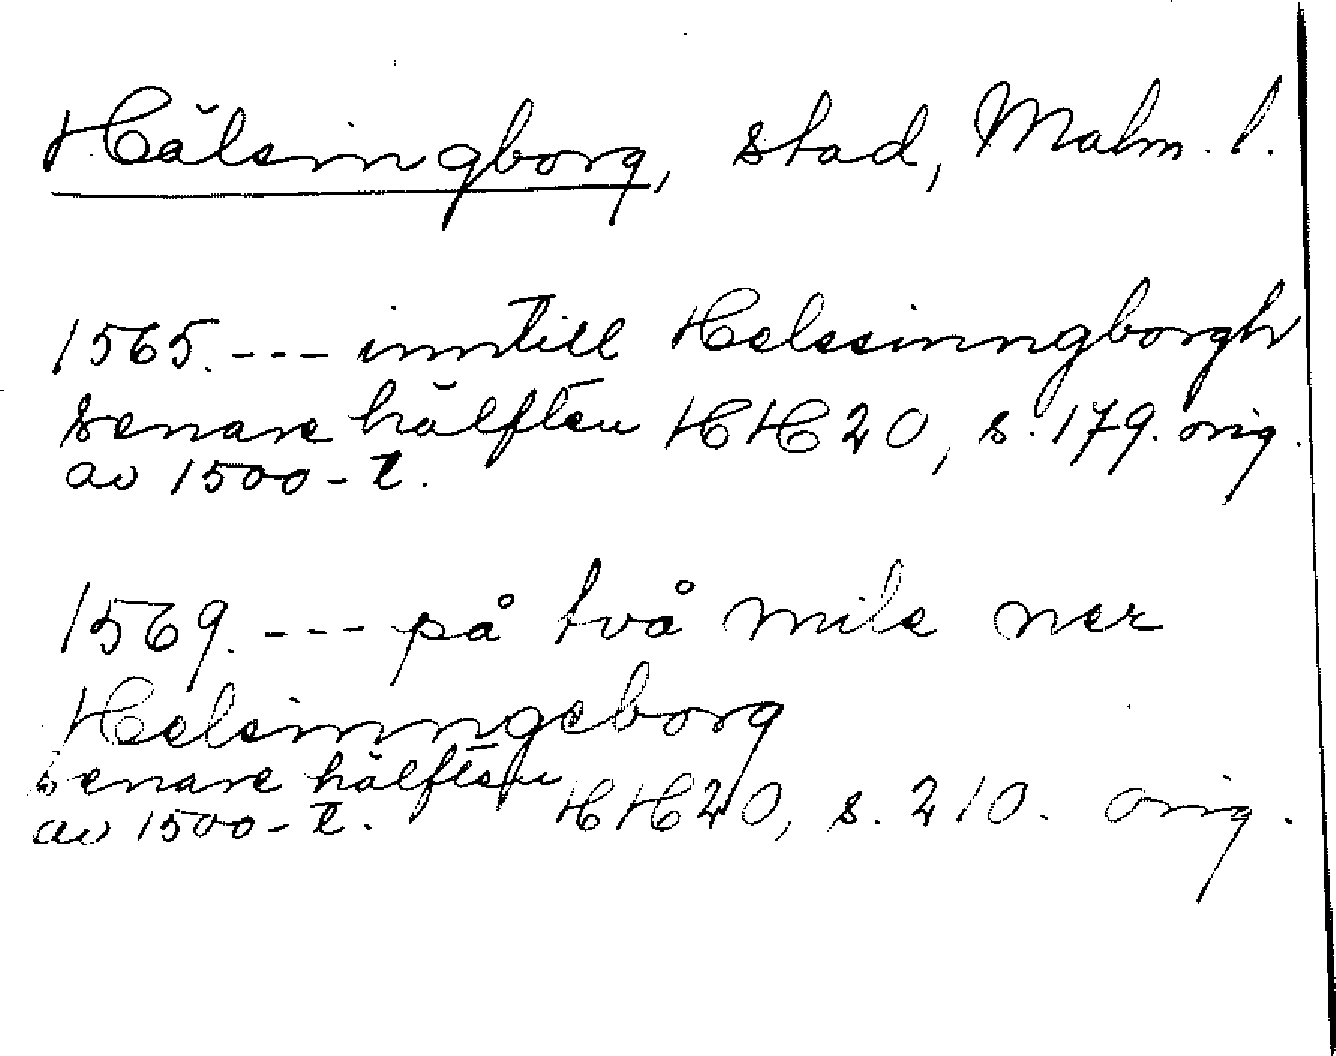 Hälsingborg, stad, Malm. l.
1565. --- inntill Helssinngborgh
senare hälften HH 20, s. 179. orig.
av 1500-t.
1569. --- på två mile ner
Helsinngeborg
senare hälften HH 20, s. 210. orig.
av 1500-t.